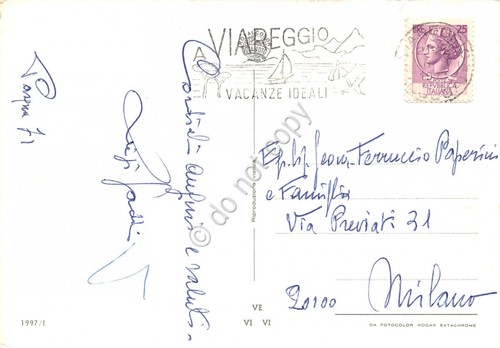 VIAREGGIO
VACANZE IDEALI
25
REPUBBLICA
ITALIANA
Pasqua 71
Cordiali auguri e saluti
Riproduzione
Ferruccio Paperini
e Famiglia
Via Previati 31
20100 Milano
1997/I
VE
VI VI
DA FOTOCOLOR KODAK EKTACHROME
do not copy